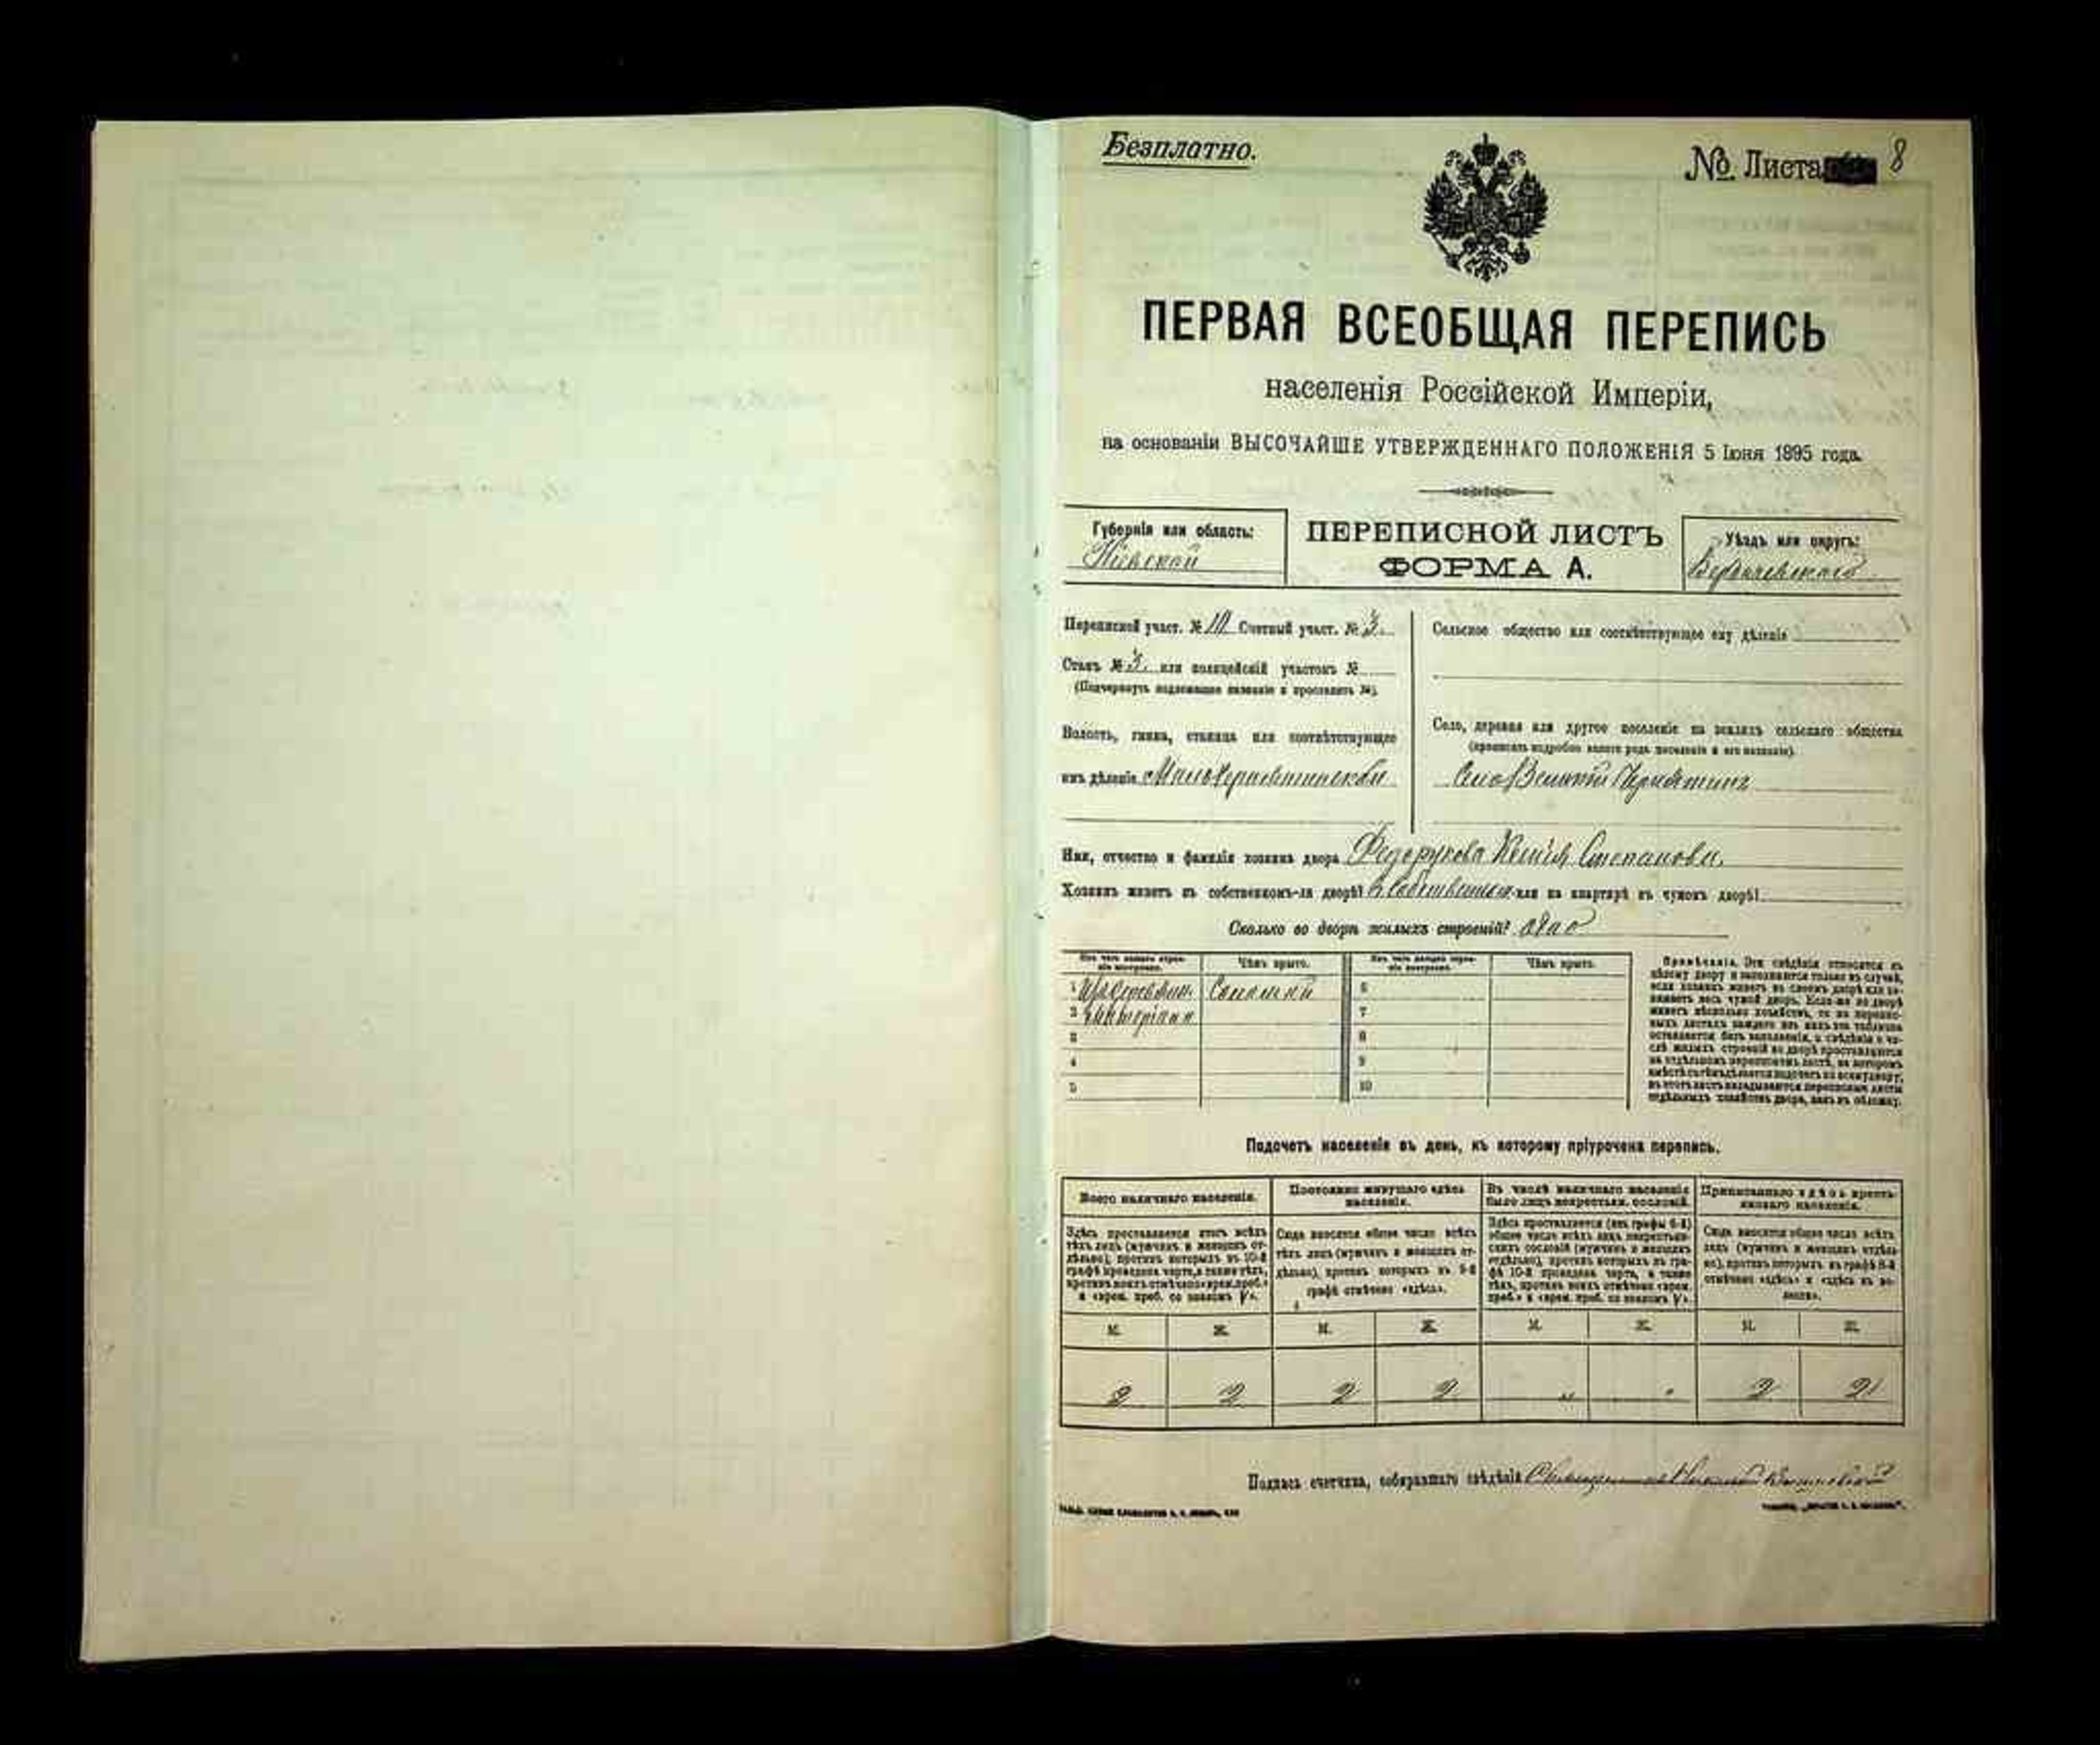 Безплатно.
№ Листа 8
ПЕРВАЯ ВСЕОБЩАЯ ПЕРЕПИСЬ
населенія Россійской Имперіи,
на основаніи ВЫСОЧАЙШЕ УТВЕРЖДЕННАГО ПОЛОЖЕНІЯ 5 Іюня 1895 года.
Губернія или область:
Кіевской
ПЕРЕПИСНОЙ ЛИСТЪ
ФОРМА А.
Уѣздъ или округъ:
Бердичевскаго
Переписной участ. № 10 Счетный участ. № 3.
Станъ № 3. или полицейскій участокъ №
(Подчеркнуть подлежащее названіе и проставить №).
Волость, гмина, станица или соотвѣтствующее
имъ дѣленіе
Сельское общество или соотвѣтствующее ему дѣленіе
Село, деревня или другое поселеніе на земляхъ сельскаго общества
(прописать подробно какого рода поселеніе и его названіе).
Село Великій Чернятинъ
Имя, отчество и фамилія хозяина двора Федорукова Ксенія Степанова.
Хозяинъ живетъ въ собственномъ-ли дворѣ? или на квартирѣ въ чужомъ дворѣ?
Сколько во дворѣ жилыхъ строеній? одно
Изъ чего каждое строеніе построено.
Чѣмъ крыто.
Изъ чего каждое строеніе построено.
Чѣмъ крыто.
1 Соломой 6
2 7
3 8
4 9
5 10
Примѣчаніе. Эти свѣдѣнія относятся къ
цѣлому двору и заполняются только въ случаѣ,
если хозяинъ живетъ въ своемъ дворѣ или занимаетъ
весь чужой дворъ. Если-же во дворѣ
живетъ нѣсколько хозяйствъ, то на переписныхъ
листахъ каждаго изъ нихъ эта табличка
оставляется безъ заполненія, а свѣдѣнія о числѣ
жилыхъ строеній во дворѣ проставляются
на отдѣльномъ переписномъ листѣ, на которомъ
вмѣстѣ съ тѣмъ дѣлается подсчетъ по всему двору;
въ этотъ листъ вкладываются переписные листы
отдѣльныхъ хозяйствъ двора, какъ въ обложку.
Подсчетъ населенія въ день, къ которому пріурочена перепись.
Всего наличнаго населенія.
Постоянно живущаго здѣсь населенія.
Въ числѣ наличнаго населенія было лицъ некрестьян. сословій.
Приписаннаго здѣсь крестьянскаго населенія.
Здѣсь проставляется итогъ всѣхъ тѣхъ лицъ (мужчинъ и женщинъ отдѣльно), противъ которыхъ въ 10-й графѣ проведена черта, а также тѣхъ, противъ коихъ отмѣчено «врем. проб.» и «врем. проб. со знакомъ V».
Сюда вносится общее число всѣхъ тѣхъ лицъ (мужчинъ и женщинъ отдѣльно), противъ которыхъ въ 9-й графѣ отмѣчено «здѣсь».
Здѣсь проставляется (изъ графы 6-й) общее число всѣхъ лицъ некрестьянскихъ сословій (мужчинъ и женщинъ отдѣльно), противъ которыхъ въ графѣ 10-й проведена черта, а также тѣхъ, противъ коихъ отмѣчено «врем. проб.» и «врем. проб. со знакомъ V».
Сюда вносится общее число всѣхъ лицъ (мужчинъ и женщинъ отдѣльно), противъ которыхъ въ графѣ 8-й отмѣчено «здѣсь» и «здѣсь въ волости».
М. Ж. М. Ж. М. Ж. М. Ж.
2 2 2 2 „ „ 2 2
Подпись счетчика, собиравшаго свѣдѣнія Священникъ